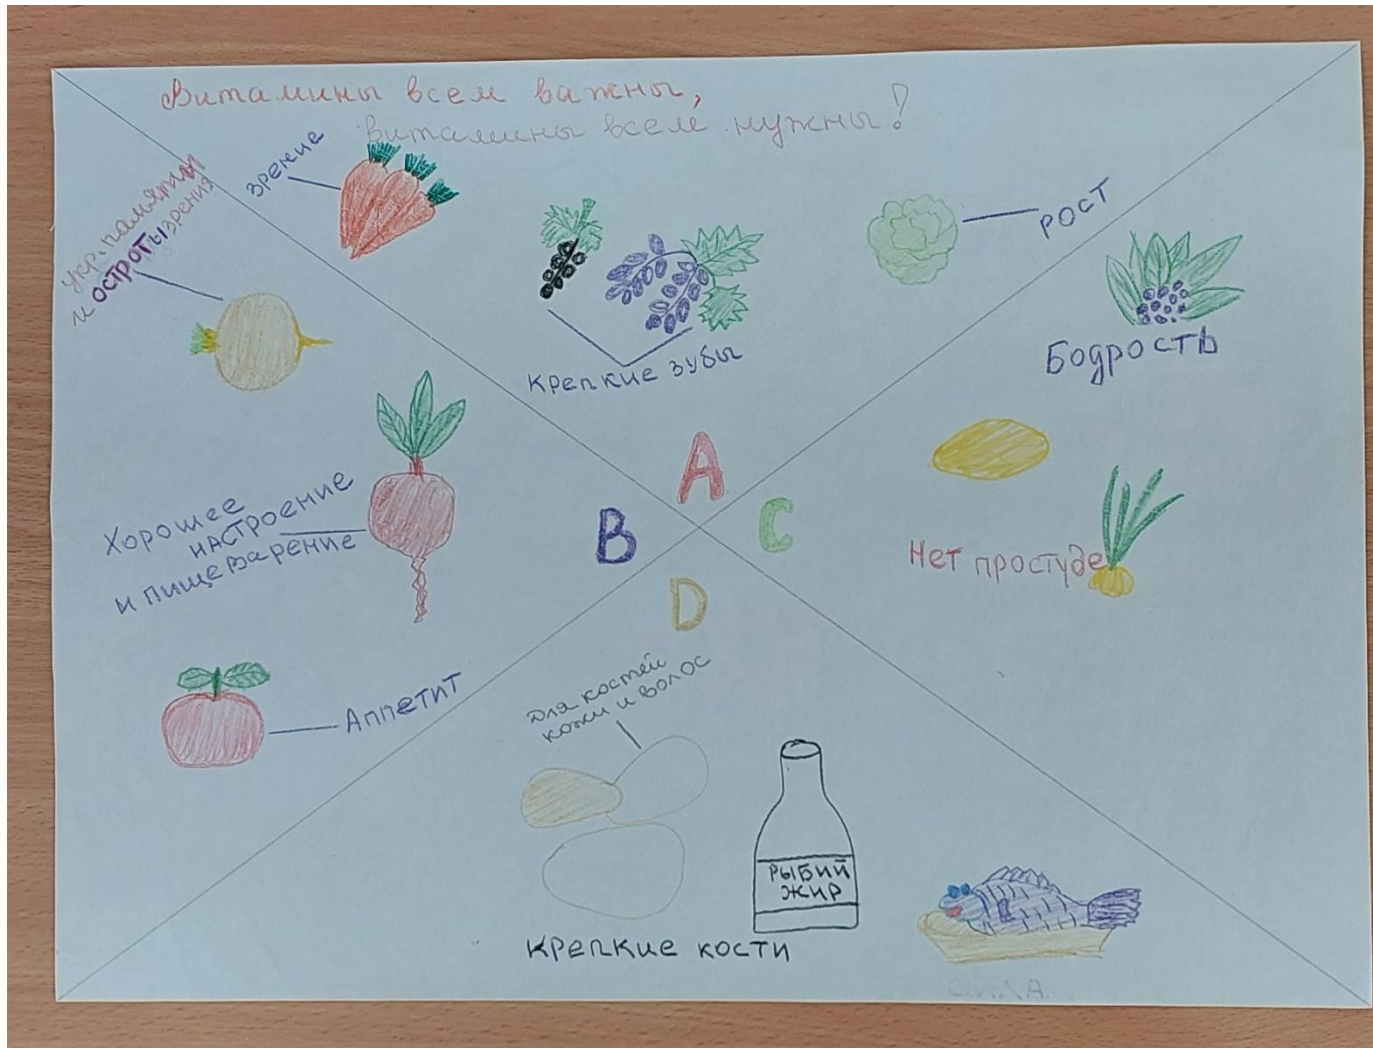 Витамины всем важны,
витамины всем нужны!
зрение
укр. памяти
и остроты зрения
Крепкие зубы
рост
Бодрость
Хорошее
настроение
и пищеварение
Аппетит
A
B
C
D
Нет простуде
Для костей
кожи и волос
РЫБИЙ
ЖИР
Крепкие кости
СИЛА